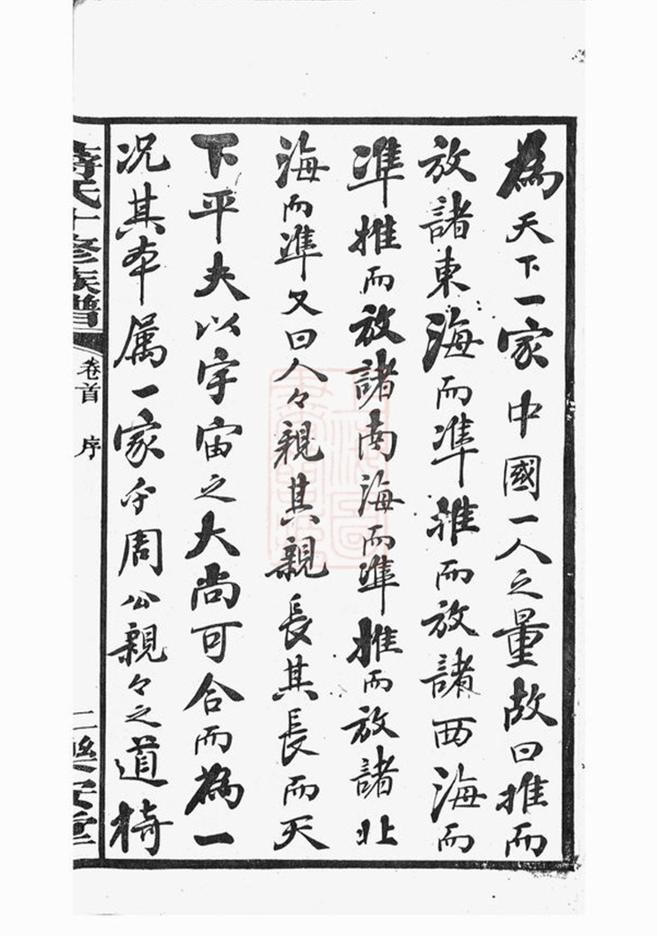 為天下一家中國一人之量故曰推而
放諸東海而凖推而放諸西海而
凖推而放諸南海而凖推而放諸北
海而凖又曰人々親其親長其長而天
下平夫以宇宙之大尚可合而為一
况其本属一家乎周公親々之道椅
蔣氏十修族譜 卷首 序 二 樂安堂